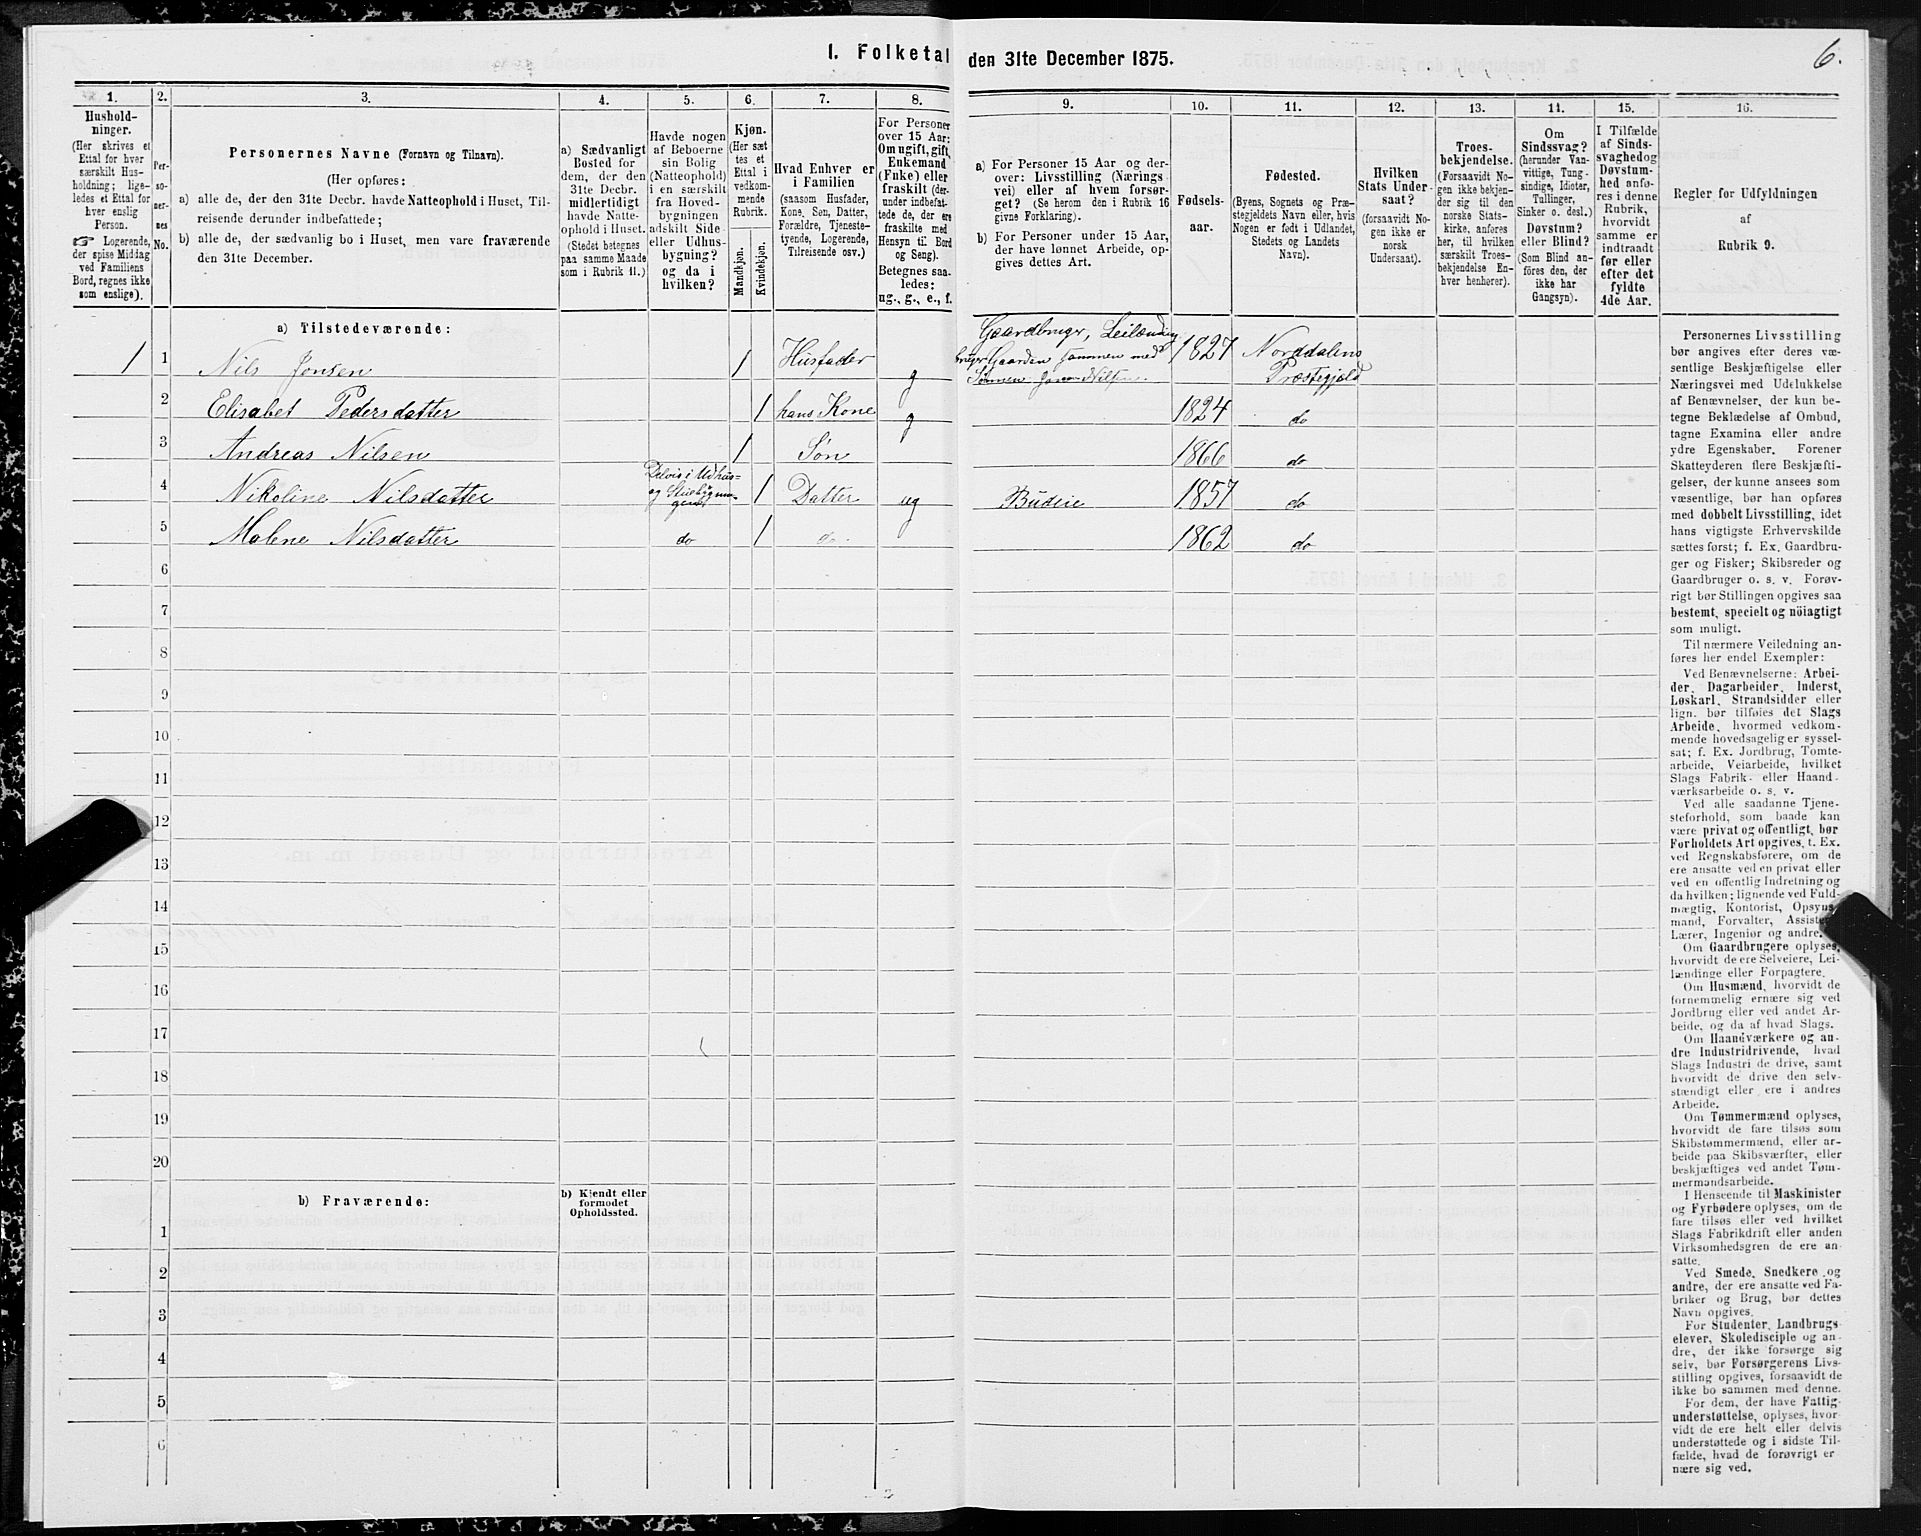 I. Folketal den 31te December 1875.
6.
1.
Hushold-
ninger.
(Her skrives et
Ettal for hver
særskilt Hus-
holdning; lige-
ledes et Ettal for
hver enslig
Person.
☞ Logerende,
der spise Middag
ved Familiens
Bord, regnes ikke
som enslige).
2.
Per-
so-
ner-
nes
No.
3.
Personernes Navne (Fornavn og Tilnavn).
(Her opføres:
a) alle de, der den 31te Decbr. havde Natteophold i Huset, Til-
reisende derunder indbefattede;
b) alle de, der sædvanlig bo i Huset, men vare fraværende
den 31te December.
4.
a) Sædvanligt
Bosted for
dem, der den
31te Decbr.
midlertidigt
havde Natte-
ophold i Huset.
(Stedet betegnes
paa samme Maade
som i Rubrik 11.)
5.
Havde nogen
af Beboerne
sin Bolig
(Natteophold)
i en særskilt
fra Hoved-
bygningen
adskilt Side-
eller Udhus-
bygning?
og da i
hvilken?
6.
Kjøn.
(Her sæt
tes et
Ettal i
vedkom-
mende
Rubrik.
Mandkjøn.
Kvindekjøn.
7.
Hvad Enhver er
i Familien
(saasom Husfader,
Kone, Søn, Datter,
Forældre, Tjeneste-
tyende, Logerende,
Tilreisende osv.)
8.
For Personer
over 15 Aar:
Om ugift, gift,
Enkemand
(Enke) eller
fraskilt (der-
under indbefat-
tede de, der ere
fraskilte med
Hensyn til Bord
og Seng).
Betegnes saa-
ledes:
ug., g., e., f.
9.
a) For Personer 15 Aar og der-
over: Livsstilling (Nærings
vei) eller af hvem forsør-
get? (Se herom den i Rubrik 16
givne Forklaring).
b) For Personer under 15 Aar,
der have lønnet Arbeide, op-
gives dettes Art.
10.
Fødsels-
aar.
11.
Fødested.
(Byens, Sognets og Præ-
stegjeldets Navn eller, hvis
Nogen er født i Udlandet,
Stedets og Landets
Navn).
12.
Hvilken
Stats Under-
saat?
(forsaavidt No-
gen ikke er
norsk
Undersaat).
13.
Troes-
bekjendelse.
(Forsaavidt No-
gen ikke bekjen-
der sig til den
norske Stats-
kirke, anføres
her, til hvilken
særskilt Troes-
bekjendelse En-
hver henhører).
14.
Om
Sindssvag?
(herunder Van-
vittige, Tung-
sindige, Idioter,
Tullinger,
Sinker o. desl.)
Døvstum?
eller Blind?
(Som Blind an-
føres den, der
ikke har
Gangsyn).
15.
I Tilfælde
af Sinds-
svaghed og
Døvstum-
hed anfø-
res i denne
Rubrik,
hvorvidt
samme er
indtraadt
før eller
efter det
fyldte
4de Aar.
16.
Regler for Udfyldningen
af
Rubrik 9.
a) Tilstedeværende:
1 1 Nils Jonsen 1 Husfader g Gaardbruger, Leilænding
bruger Gaarden sammen med
Sønnen Jon Nilsen. 1827 Norddalens
Præstegjeld
2 Elisabet Pedersdatter 1 hans Kone g 1824 do
3 Andreas Nilsen 1 Søn 1866 do
4 Nikoline Nilsdatter Delvis i Udhus-
og 1 Datter ug Budeie 1857 do
5 Malene Nilsdatter do 1 do. 1862 do
6
7
8
9
10
11
12
13
14
15
16
17
18
19
20
b) Fraværende:
b) Kjendt eller
formodet
Opholdssted.
1
2
3
4
5
6
Personernes Livsstilling
bør angives efter deres væ-
sentlige Beskjæftigelse eller
Næringsvei med Udelukkelse
af Benævnelser, der kun be-
tegne Beklædelse af Ombud,
tagne Examina eller andre
ydre Egenskaber. Forener
Skatteyderen flere Beskjæfti-
gelser, der kunne ansees som
væsentlige, bør han opføres
med dobbelt Livsstilling, idet
hans vigtigste Erhvervskilde
sættes først; f. Ex. Gaardbru-
ger og Fisker; Skibsreder og
Gaardbruger o. s. v. Forøv-
rigt bør Stillingen opgives saa
bestemt, specielt og nöiagtigt
som muligt.
Til nærmere Veiledning an-
føres her endel Exempler:
Ved Benævnelserne: Arbei-
der, Dagarbeider, Inderst,
Løskarl, Strandsidder eller
lign. bør tilføies det Slags
Arbeide, hvormed vedkom-
mende hovedsagelig er syssel-
sat; f. Ex. Jordbrug, Tomte-
arbeide, Veiarbeide, hvilket
Slags Fabrik- eller Haand-
værksarbeide o. s. v.
Ved alle saadanne Tjene-
steforhold, som baade kan
være privat og offentligt, bør
Forholdets Art opgives, t. Ex.
ved Regnskabsførere, om de
ere ansatte ved en privat eller
ved en offentlig Indretning og
da hvilken; lignende ved Fuld-
mægtig, Kontorist, Opsyns-
mand, Forvalter, Assistent,
Lærer, Ingeniør og andre.
Om Gaardbrugere oplyses,
hvorvidt de ere Selveiere, Lei-
lændinge eller Forpagtere.
Om Husmænd, hvorvidt de
fornemmelig ernære sig ved
Jordbrug eller ved andet Ar-
beide, og da af hvad Slags.
Om Haandværkere og an-
dre Industridrivende, hvad
Slags Industri de drive, samt
hvorvidt de drive den selv-
stændigt eller ere i andres
Arbeide.
Om Tømmermænd oplyses,
hvorvidt de fare tilsøs som
Skibstømmermænd, eller ar-
beide paa Skibsværfter, eller
beskjæftiges ved andet Tøm-
mermandsarbeide.
I Henseende til Maskinister
og Fyrbødere oplyses, om de
fare tilsøs eller ved hvilket
Slags Fabrikdrift eller anden
Virksomhedsgren de ere an-
satte.
Ved Smede, Snedkere og
andre, der ere ansatte ved Fa-
briker og Brug, bør dettes
Navn opgives.
For Studenter, Landbrugs-
elever, Skoledisciple og an-
dre, der ikke forsørge sig
selv, bør Forsørgerens Livs-
stilling opgives, forsaavidt de
ikke bo sammen med denne.
For dem, der have Fattig-
understøttelse, oplyses, hvor-
vidt de ere helt eller delvis
understøttede og i sidste Til-
fælde, hvad de forøvrigt er-
nære sig ved.